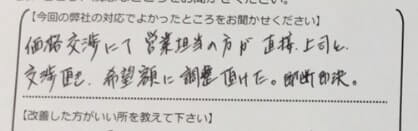 【今回の弊社の対応でよかったところをお聞かせください】
価格交渉にて営業担当の方が直接上司と
交渉 、希望額に調整頂けた。即断即決。
【改善した方がいい所を教えて下さい】